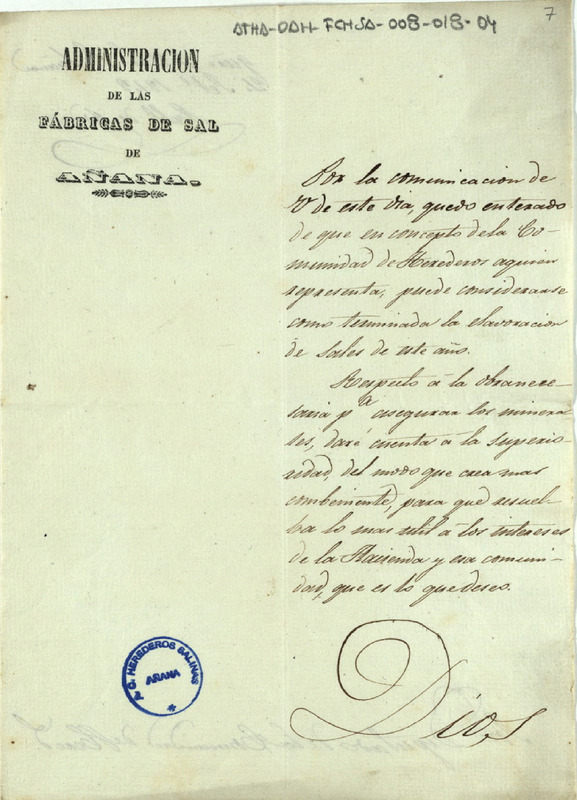 ATHA-DAH-FCHSA-008-018-04
7
ADMINISTRACION
DE LAS
FÁBRICAS DE SAL
DE
AÑANA.
Por la comunicacion de
V de este dia, quedo enterado
de que en concepto de la Co-
munidad de Herederos aquien
representa, puede considerarse
como terminada la elavoracion
de Sales de este año.
Respecto á la obra nece-
saria pª asegurar los minera-
les, daré cuenta á la superio-
ridad, del modo que crea mas
combeniente, para que resuel-
ba lo mas util á los intereses
de la Hacienda y esa comuni-
dad, que es lo que deseo.
Dios
T. C. HEREDEROS SALINAS
AÑANA